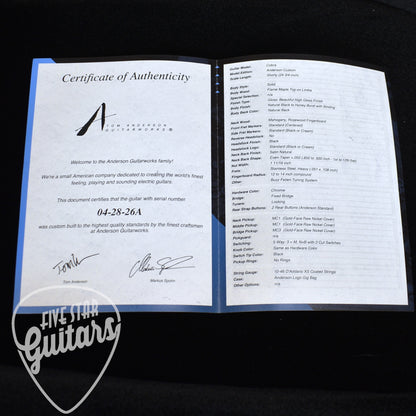 Certificate of Authenticity
TOM ANDERSON
GUITARWORKS
Welcome to the Anderson Guitarworks family!
We're a small American company dedicated to creating the world's finest
feeling, playing and sounding electric guitars.
This document certifies that the guitar with serial number
04-28-26A
was custom built to the highest quality standards by the finest craftsmen
at Anderson Guitarworks.
Tom Anderson
Guitar Model: Cobra
Model Edition: Anderson Custom
Scale Length: Shorty (24 3/4 inch)
Body Style: Solid
Body Wood: Flame Maple Top on Limba
Special Option: n/a
Finish Type: Gloss: Beautiful High Gloss Finish
Body Finish: Natural Black to Honey Burst with Binding
Body Back Color: Natural Back
Neck Wood: Mahogany, Rosewood Fingerboard
Front-Fret Markers: Standard (Centered)
Side Fret Markers: Standard (Black or Cream)
Reverse Headstock: No
Headstock Finish: Black
Headstock Logo: Standard (Black or Cream)
Neck Back Finish: Satin Natural
Neck Back Shape:
Nut Width: 1 11/16 inch
Frets:
Fingerboard Radius: 12 to 14 inch compound
Other: Buzz Feiten Tuning System
Hardware Color: Chrome
Bridge: Fixed Bridge
Tuners: Locking
Rear Strap Buttons: 2 Rear Buttons (Anderson Standard)
Neck Pickup: MC1 (Gold Faire Raw Nickel Cover)
Middle Pickup:
Bridge Pickup:
Pickguard: n/a
Switching:
Knob Color: Same as Hardware Color
Switch Tip Color: Black
Pickup Rings: No Rings
String Gauge: 10-46 D'Addario XS Coated Strings
Case: Anderson Logo Gig Bag
Other Options: n/a
FIVE STAR
Guitars